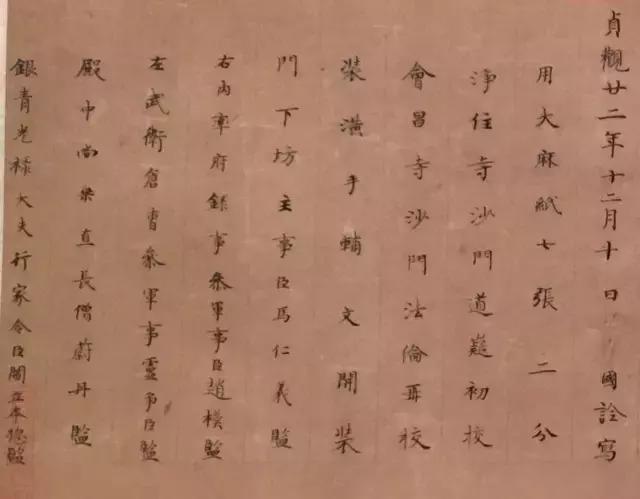 貞觀廿二年十二月十日 國詮寫
用大麻紙七張二分
淨住寺沙門道嶷初校
會昌寺沙門法倫再校
裝潢手輔文開裝
門下坊主事臣馬仁義監
右內率府錄事參軍事臣趙模監
左武衛倉曹參軍事靈臣監
殿中尚樂直長僧蔚丹監
銀青光祿大夫行家令臣閻立本總監